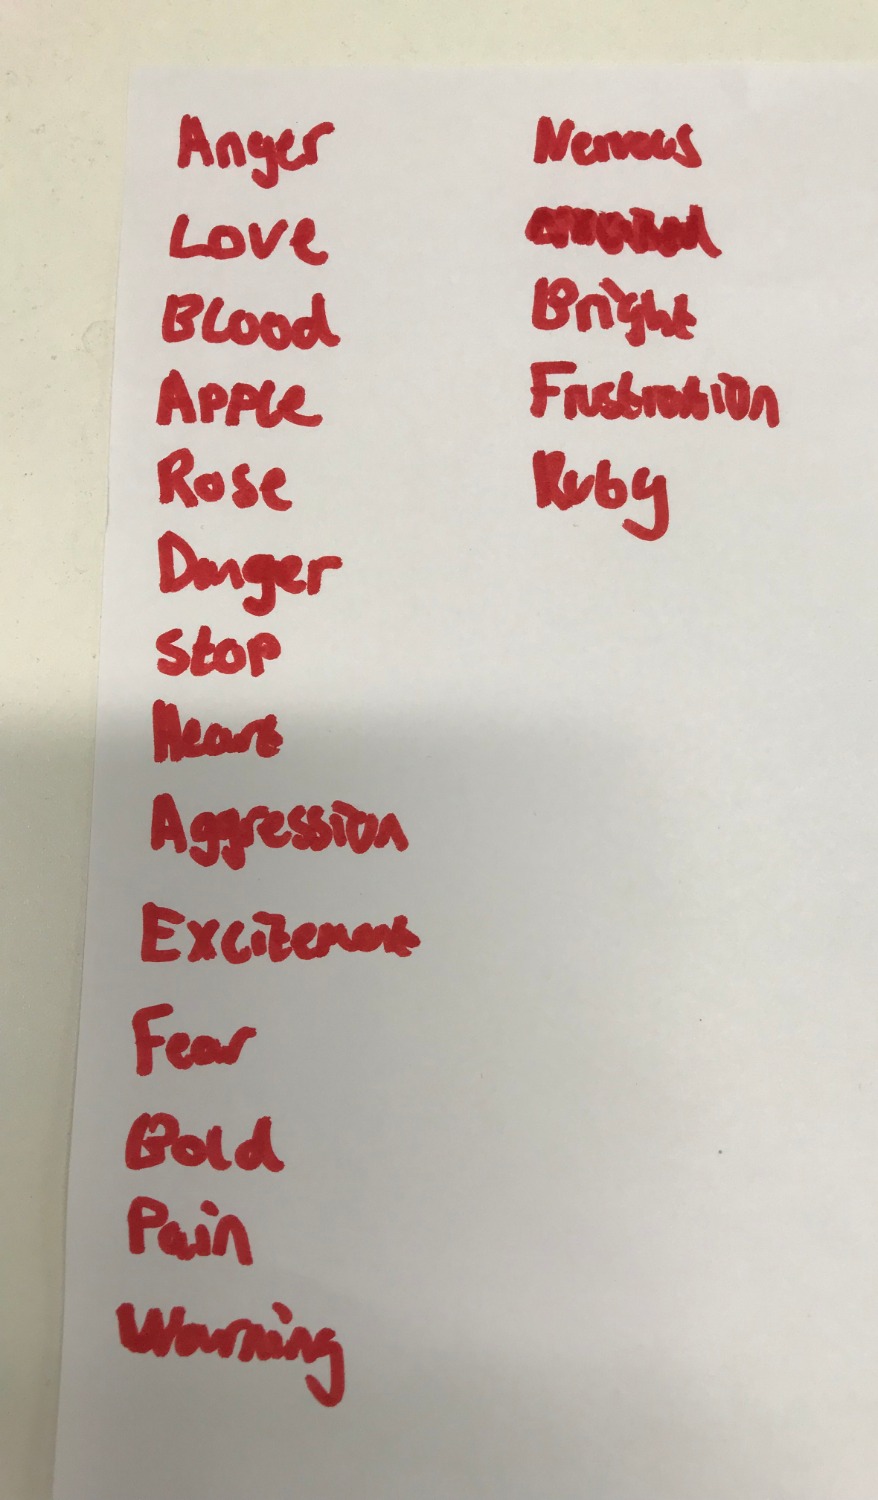 Anger
Love
Blood
Apple
Rose
Danger
Stop
Heart
Aggression
Excitement
Fear
Bold
Pain
Warning
Nervous
Bright
Frustration
Ruby